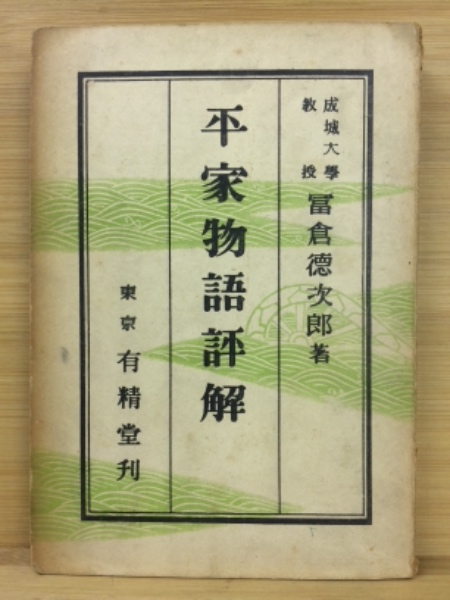 成城大學
教授
冨倉德次郎著
平家物語評解
東京
有精堂刊